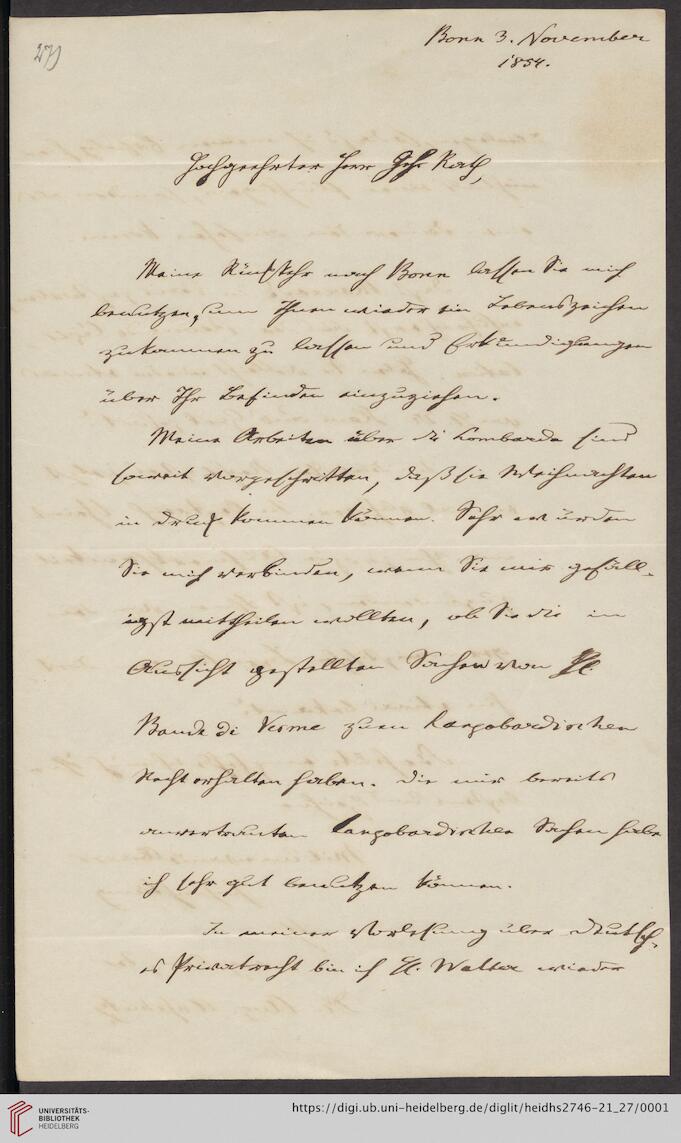 27)
Bonn 3. November
1854.
Hochgeehrter Herr Geh. Rath,
Meine Rückkehr nach Bonn lassen Sie mich
benutzen, um Ihnen wieder ein Lebenszeichen
zukommen zu lassen und Erkundigungen
über Ihr Befinden einzuziehen.
Meine Arbeiten über die Lombarda sind
soweit vorgeschritten, daß sie Weihnachten
in Druck kommen können. Sehr würden
Sie mich verbinden, wenn Sie mir gefäll-
igst mittheilen wollten, ob Sie die in
Aussicht gestellten Sachen von H.
Baudi di Vesme zum langobardischen
Recht erhalten haben. Die mir bereits
anvertrauten langobardischen Sachen habe
ich sehr gut benutzen können.
In meiner Vorlesung über deutsch-
es Privatrecht bin ich H. Walter wieder
UNIVERSITÄTS-
BIBLIOTHEK
HEIDELBERG
https://digi.ub.uni-heidelberg.de/diglit/heidhs2746-21_27/0001